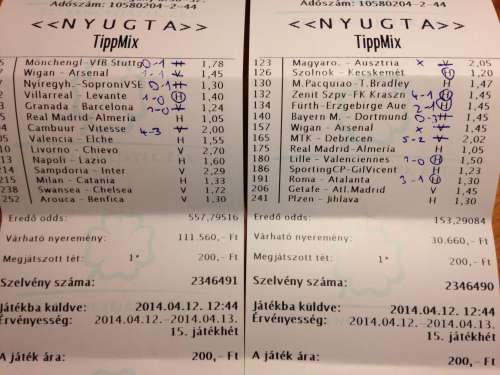 Adószám: 10580204-2-44
<<NYUGTA>>
TippMix
Mönchengl-VfB Stuttg 0-1 H 1,78
7 Wigan - Arsenal 1-1 V 1,45
Nyíregyh.-SoproniVSE 0-1 H 1,30
2 Villarreal - Levante 1-0 H 1,40
3 Granada - Barcelona 1-0 V 1,24
Real Madrid-Almeria H 1,05
4 Cambuur - Vitesse 4-3 V 2,00
Valencia - Elche H 1,55
0 Livorno - Chievo V 2,70
Napoli - Lazio H 1,60
4 Sampdoria - Inter V 2,29
215 Milan - Catania H 1,33
238 Swansea - Chelsea V 1,72
252 Arouca - Benfica V 1,30
Eredő odds: 557,79516
Várható nyeremény: 111.560,- Ft
Megjátszott tét: 1* 200,- Ft
Szelvény száma: 2346491
Játékba küldve: 2014.04.12. 12:44
Érvényesség: 2014.04.12.-2014.04.13.
15. játékhét
A játék ára: 200,- Ft
Adószám: 10580204-2-44
<<NYUGTA>>
TippMix
123 Magyaro. - Ausztria x V 2,05
126 Szolnok - Kecskemét H 1,20
130 M.Pacquiao-T.Bradley H 1,47
132 Zenit Szpv-FK Kraszn 4-1 H 1,40
134 Fürth-Erzgebirge Aue 2-1 H 1,45
140 Bayern M. - Dortmund 0-3 H 1,45
157 Wigan - Arsenal x V 1,45
165 MTK - Debrecen 5-2 V 2,02
175 Real Madrid-Almeria H 1,05
180 Lille - Valenciennes 1-0 H 1,50
186 SportingCP-GilVicent H 1,23
191 Roma - Atalanta 3-1 H 1,30
206 Getafe - Atl.Madrid V 1,45
241 Plzen - Jihlava H 1,30
Eredő odds: 153,29084
Várható nyeremény: 30.660,- Ft
Megjátszott tét: 1* 200,- Ft
Szelvény száma: 2346490
Játékba küldve: 2014.04.12. 12:44
Érvényesség: 2014.04.12.-2014.04.13.
15. játékhét
A játék ára: 200,- Ft